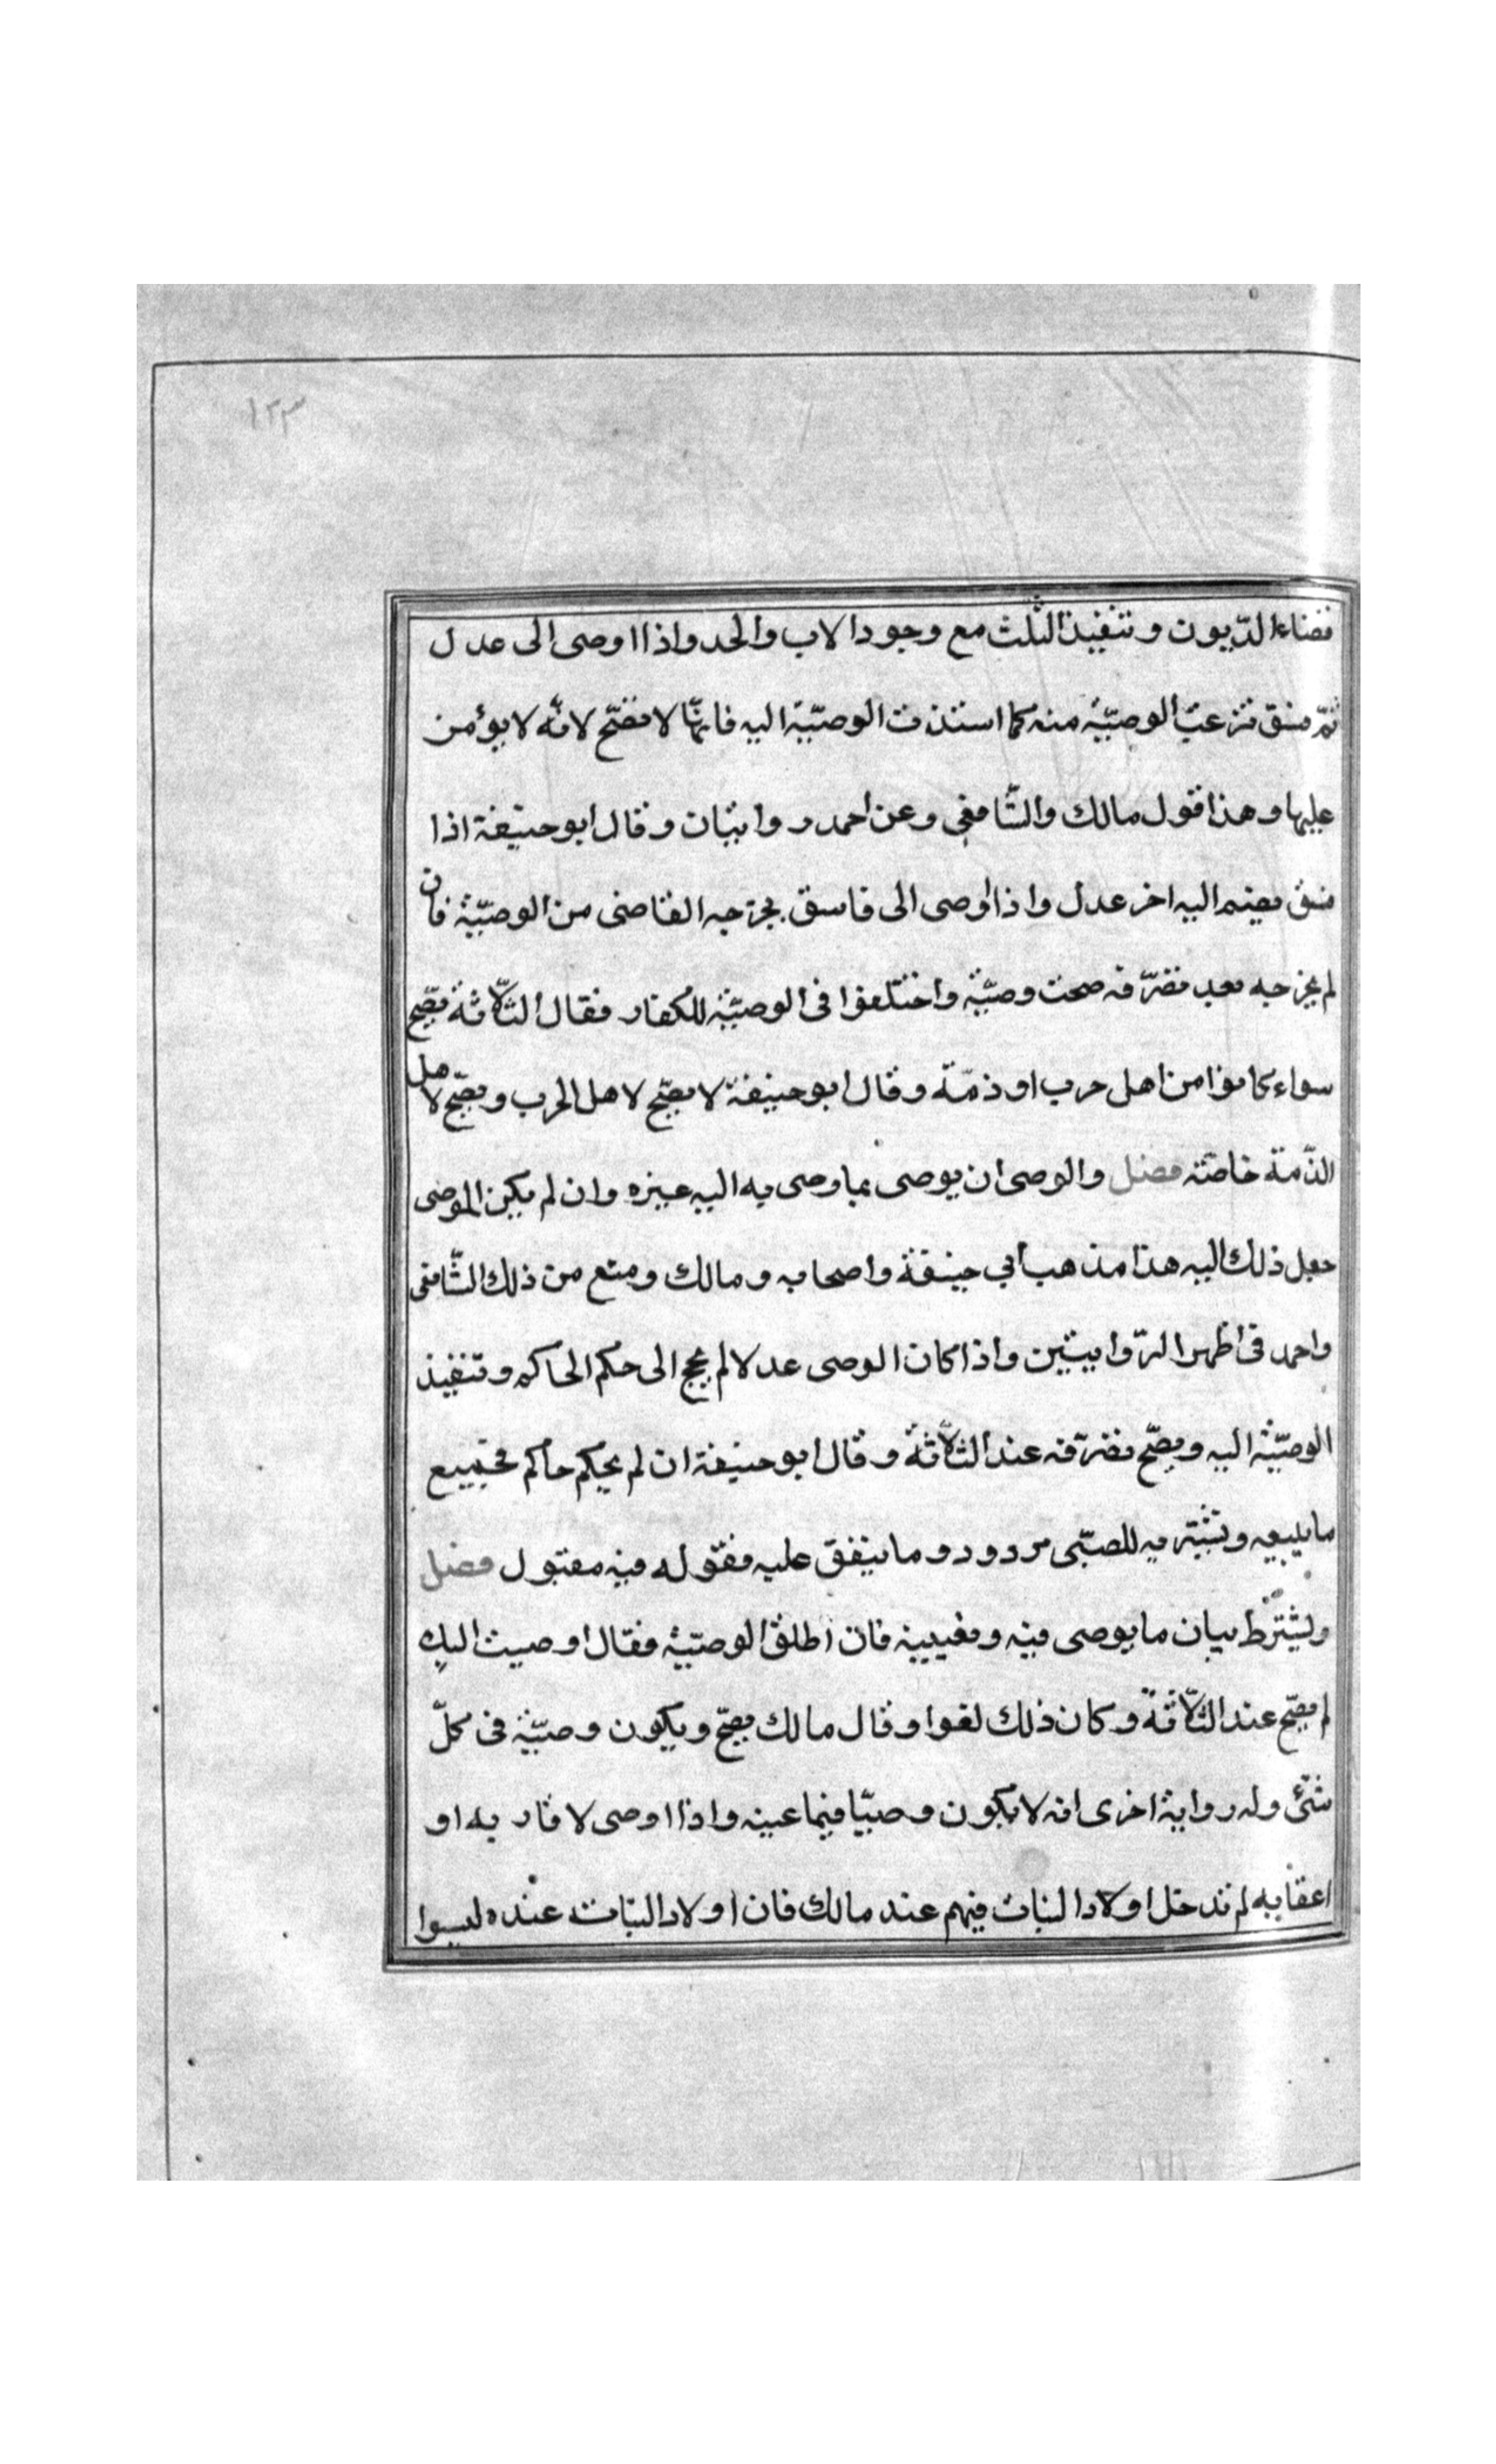 ١٢٣
قضاء الدّيون وتنفيذ الثّلث مع وجود الاب والجد واذا اوصى الى عدل
ثمّ فسق نزعت الوصيّة منه كما اسندت الوصيّة اليه فانّها لا تصحّ لانّه لا يؤمن
عليها وهذا قول مالك والشّافعي وعن احمد روايتان وقال ابو حنيفة اذا
فسق يضم اليه اخر عدل واذا اوصى الى فاسق يخرجه القاضى من الوصيّة فان
لم يخرجه بعد تصرّفه صحت وصيّة واختلفوا فى الوصيّة للكفار فقال الثّلاثة يصّح
سواء كانوا من اهل حرب او ذمّة وقال ابو حنيفة لا يصّح لاهل الحرب ويصّح لاهل
الذّمة خاصّة فصل والوصى ان يوصى بما وصى به اليه غيره وان لم يكن الموصى
جعل ذلك اليه هذا مذهب ابي حنيفة واصحابه ومالك ومنع من ذلك الشّافعى
واحمد فى اظهر الرّوايتين واذا كان الوصى عدلا لم يحج الى حكم الحاكم وتنفيذ
الوصيّة اليه ويصّح تصرّفه عند الثلاثة وقال ابو حنيفة ان لم يحكم حاكم فجميع
ما يبيعه وتشتريه للصبّى مردود وما ينفق عليه فقوله فيه مقبول فصل
ويشترط بيان ما يوصى فيه وتعيينه فان اطلق الوصيّة فقال اوصيت اليك
لم يصّح عند الثّلاثة وكان ذلك لغوا وقال مالك يصّح ويكون وصيّة فى كلّ
شئ وله رواية اخرى انه لا يكون وصيّا فيما عينه واذا اوصى لاقاربه او
اعقابه لم تدخل اولاد البنات فيهم عند مالك فان اولاد البنات عنده ليسوا